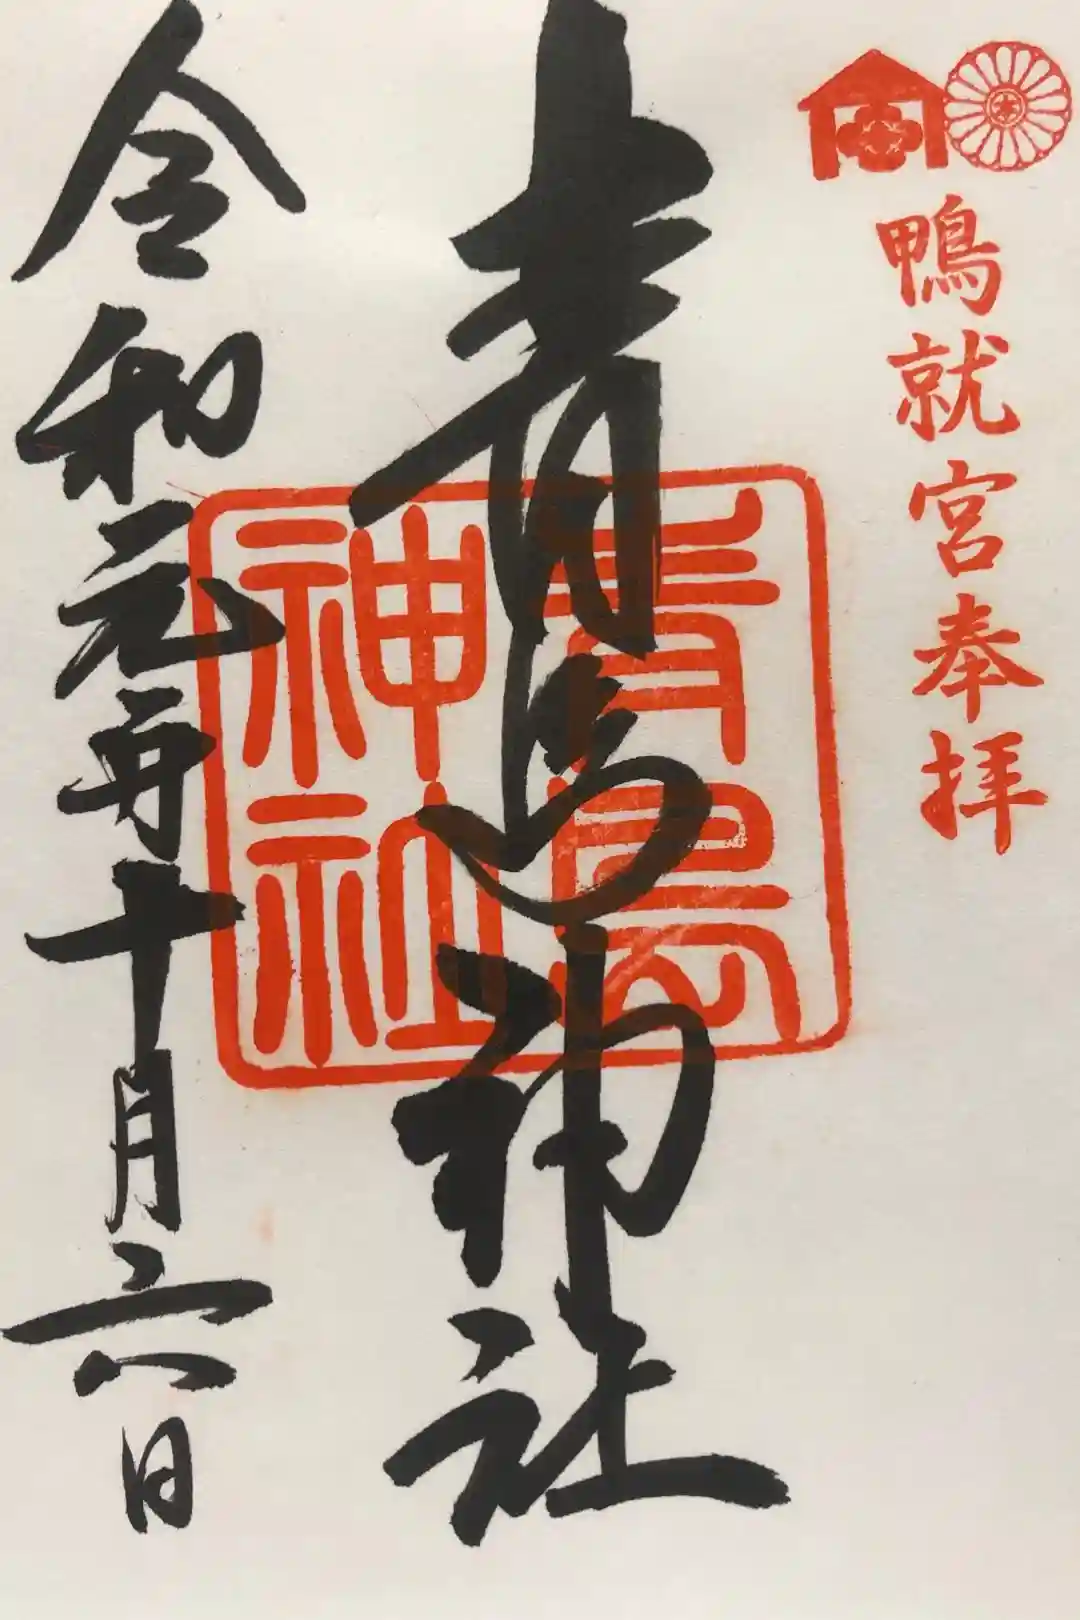 鴨就宮奉拝
青島神社
青島
神社
令和元年十月六日